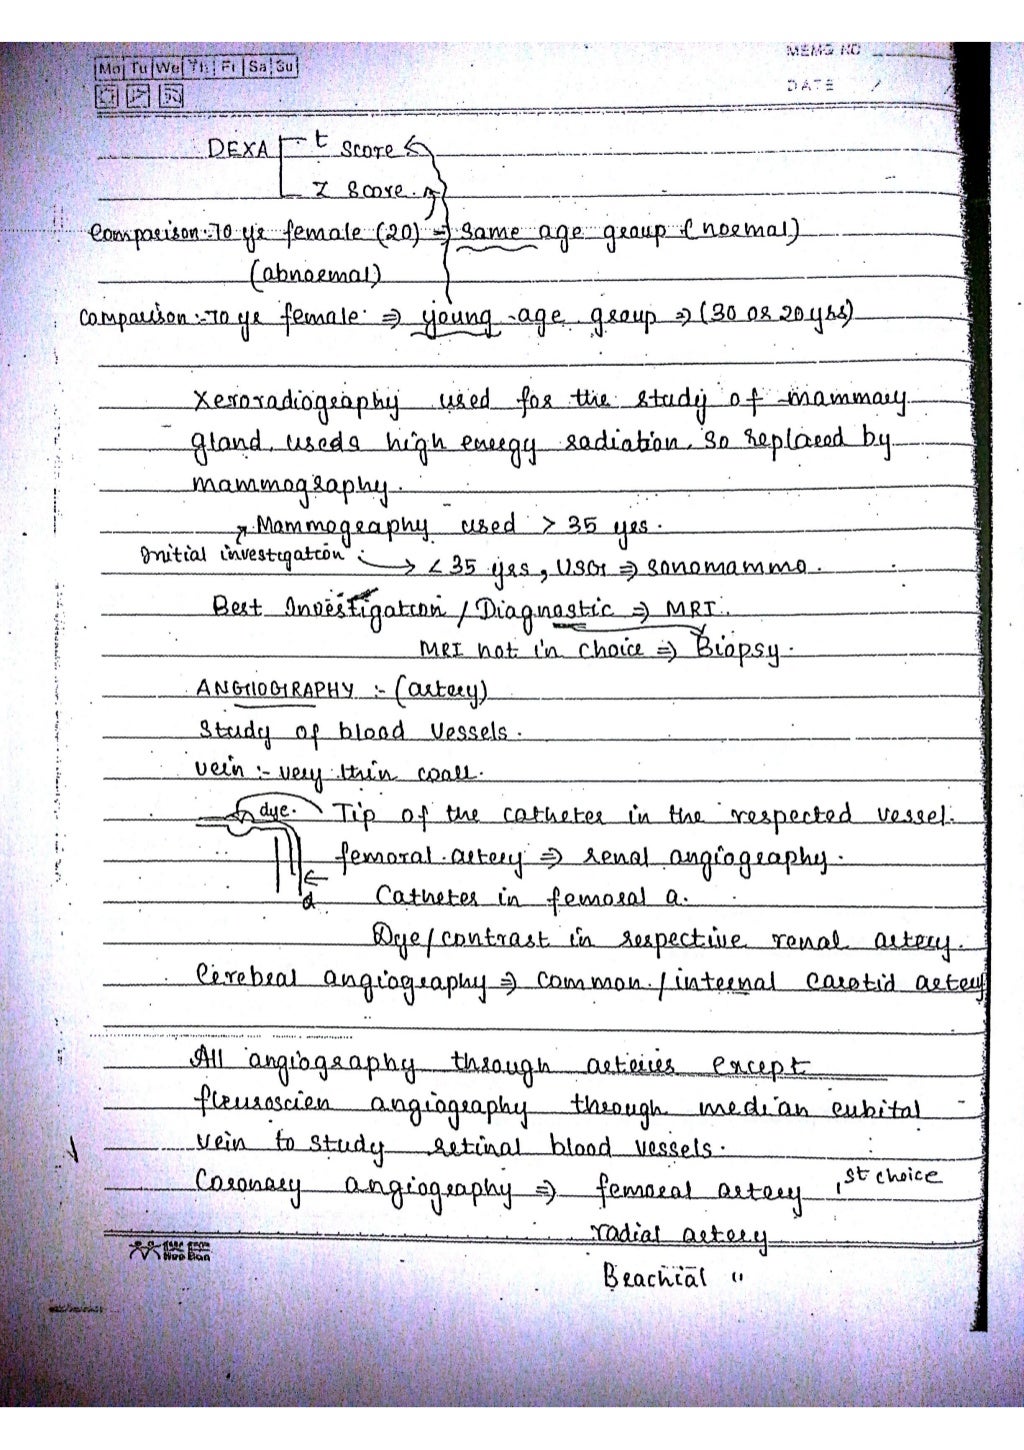 Mo Tu We Th Fr Sa Su
MEMO NO
DATE / /
DEXA t score
Z score.
Comparison:- 70 yr female (20) ⇒ same age group (normal)
(abnormal)
Comparison:- 70 yr female ⇒ young age group ⇒ (30 or 20 yrs)
Xeroradiography used for the study of mammary
gland, useds high energy radiation. So replaced by
mammography.
Mammography used > 35 yrs.
Initial investigation
< 35 yrs, USG ⇒ sonomammo.
Best Investigation / Diagnostic ⇒ MRI.
MRI not in choice ⇒ Biopsy.
ANGIOGRAPHY :- (artery)
Study of blood vessels.
vein :- very thin wall.
dye. Tip of the catheter in the respected vessel.
femoral artery ⇒ renal angiography.
Catheter in femoral a.
Dye/contrast in respective renal artery.
Cerebral angiography ⇒ common / internal carotid artery
All angiography through arteries except
fleuroscien angiography through median cubital
vein to study retinal blood vessels.
Coronary angiography ⇒ femoral artery 1st choice
radial artery
Brachial "